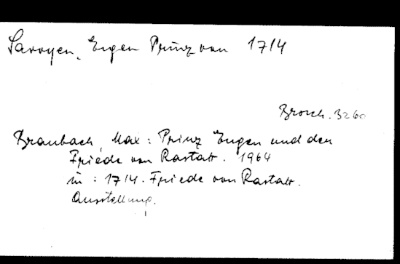 Savoyen, Eugen Prinz von 1714
Brosch. 3260
Braubach, Max: Prinz Eugen und der
Friede von Rastatt. 1964
in: 1714. Friede von Rastatt.
Ausstellung.